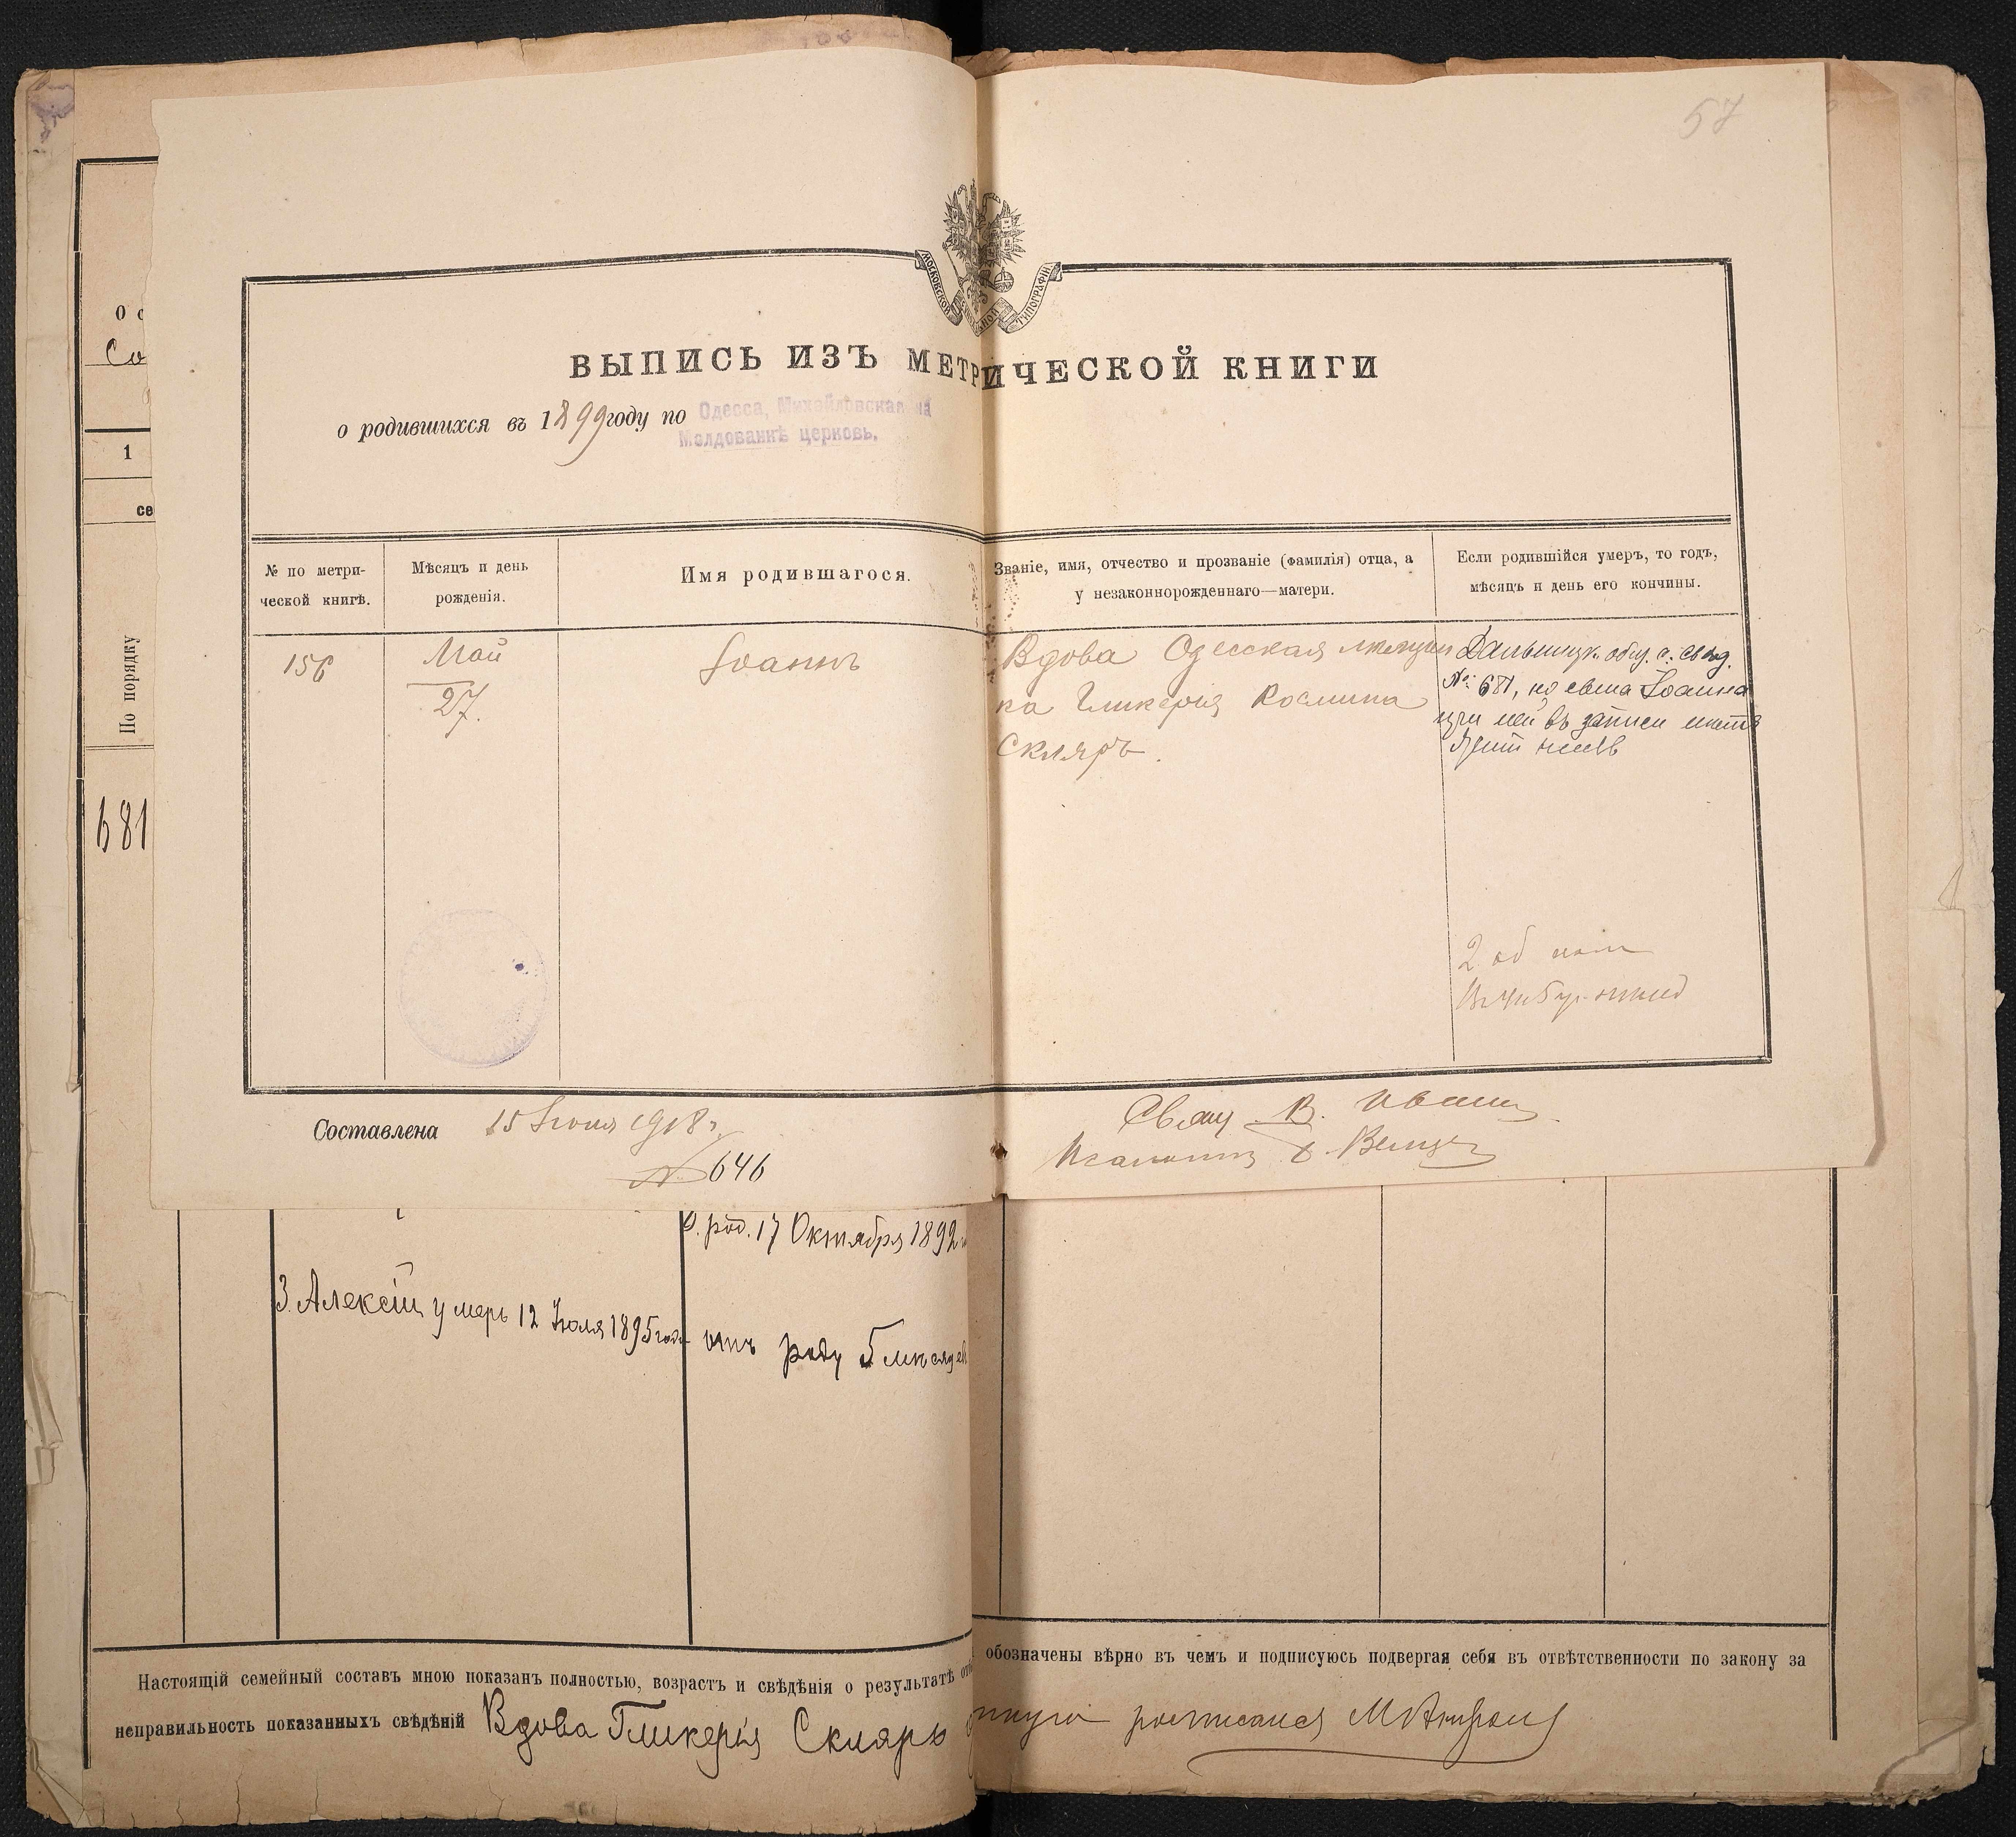 57
МОСКОВСКОЙ
ТИПОГРАФІИ
ВЫПИСЬ ИЗЪ МЕТРИЧЕСКОЙ КНИГИ
о родившихся въ 1899 году по Одесса, Михайловская на
Молдованкѣ церковь.
№ по метри-
ческой книгѣ.
Мѣсяцъ и день
рожденія.
Имя родившагося.
Званіе, имя, отчество и прозваніе (фамилія) отца, а
у незаконнорожденнаго—матери.
Если родившійся умеръ, то годъ,
мѣсяцъ и день его кончины.
156
Май
27.
Іоаннъ
Вдова Одесская мѣщан
ка Гликерія Космина
Скляръ.
Дальницк. общ. с.
№ 681, но сына Іоанна
при ней въ записи
2 об
Составлена 15 Іюня 1918 г.
№ 646
Свящ. В.
Псаломщ
о с
Со
1
се
По порядку
681
р. род. 17 Октября 1892
3. Алексій умеръ 12 Іюля 1895 года отъ роду 5 мѣсяцев
Настоящій семейный составъ мною показанъ полностью, возрастъ и свѣдѣнія о результатѣ от
обозначены вѣрно въ чемъ и подписуюсь подвергая себя въ отвѣтственности по закону за
неправильность показанныхъ свѣдѣній Вдова Гликерія Скляръ
росписался